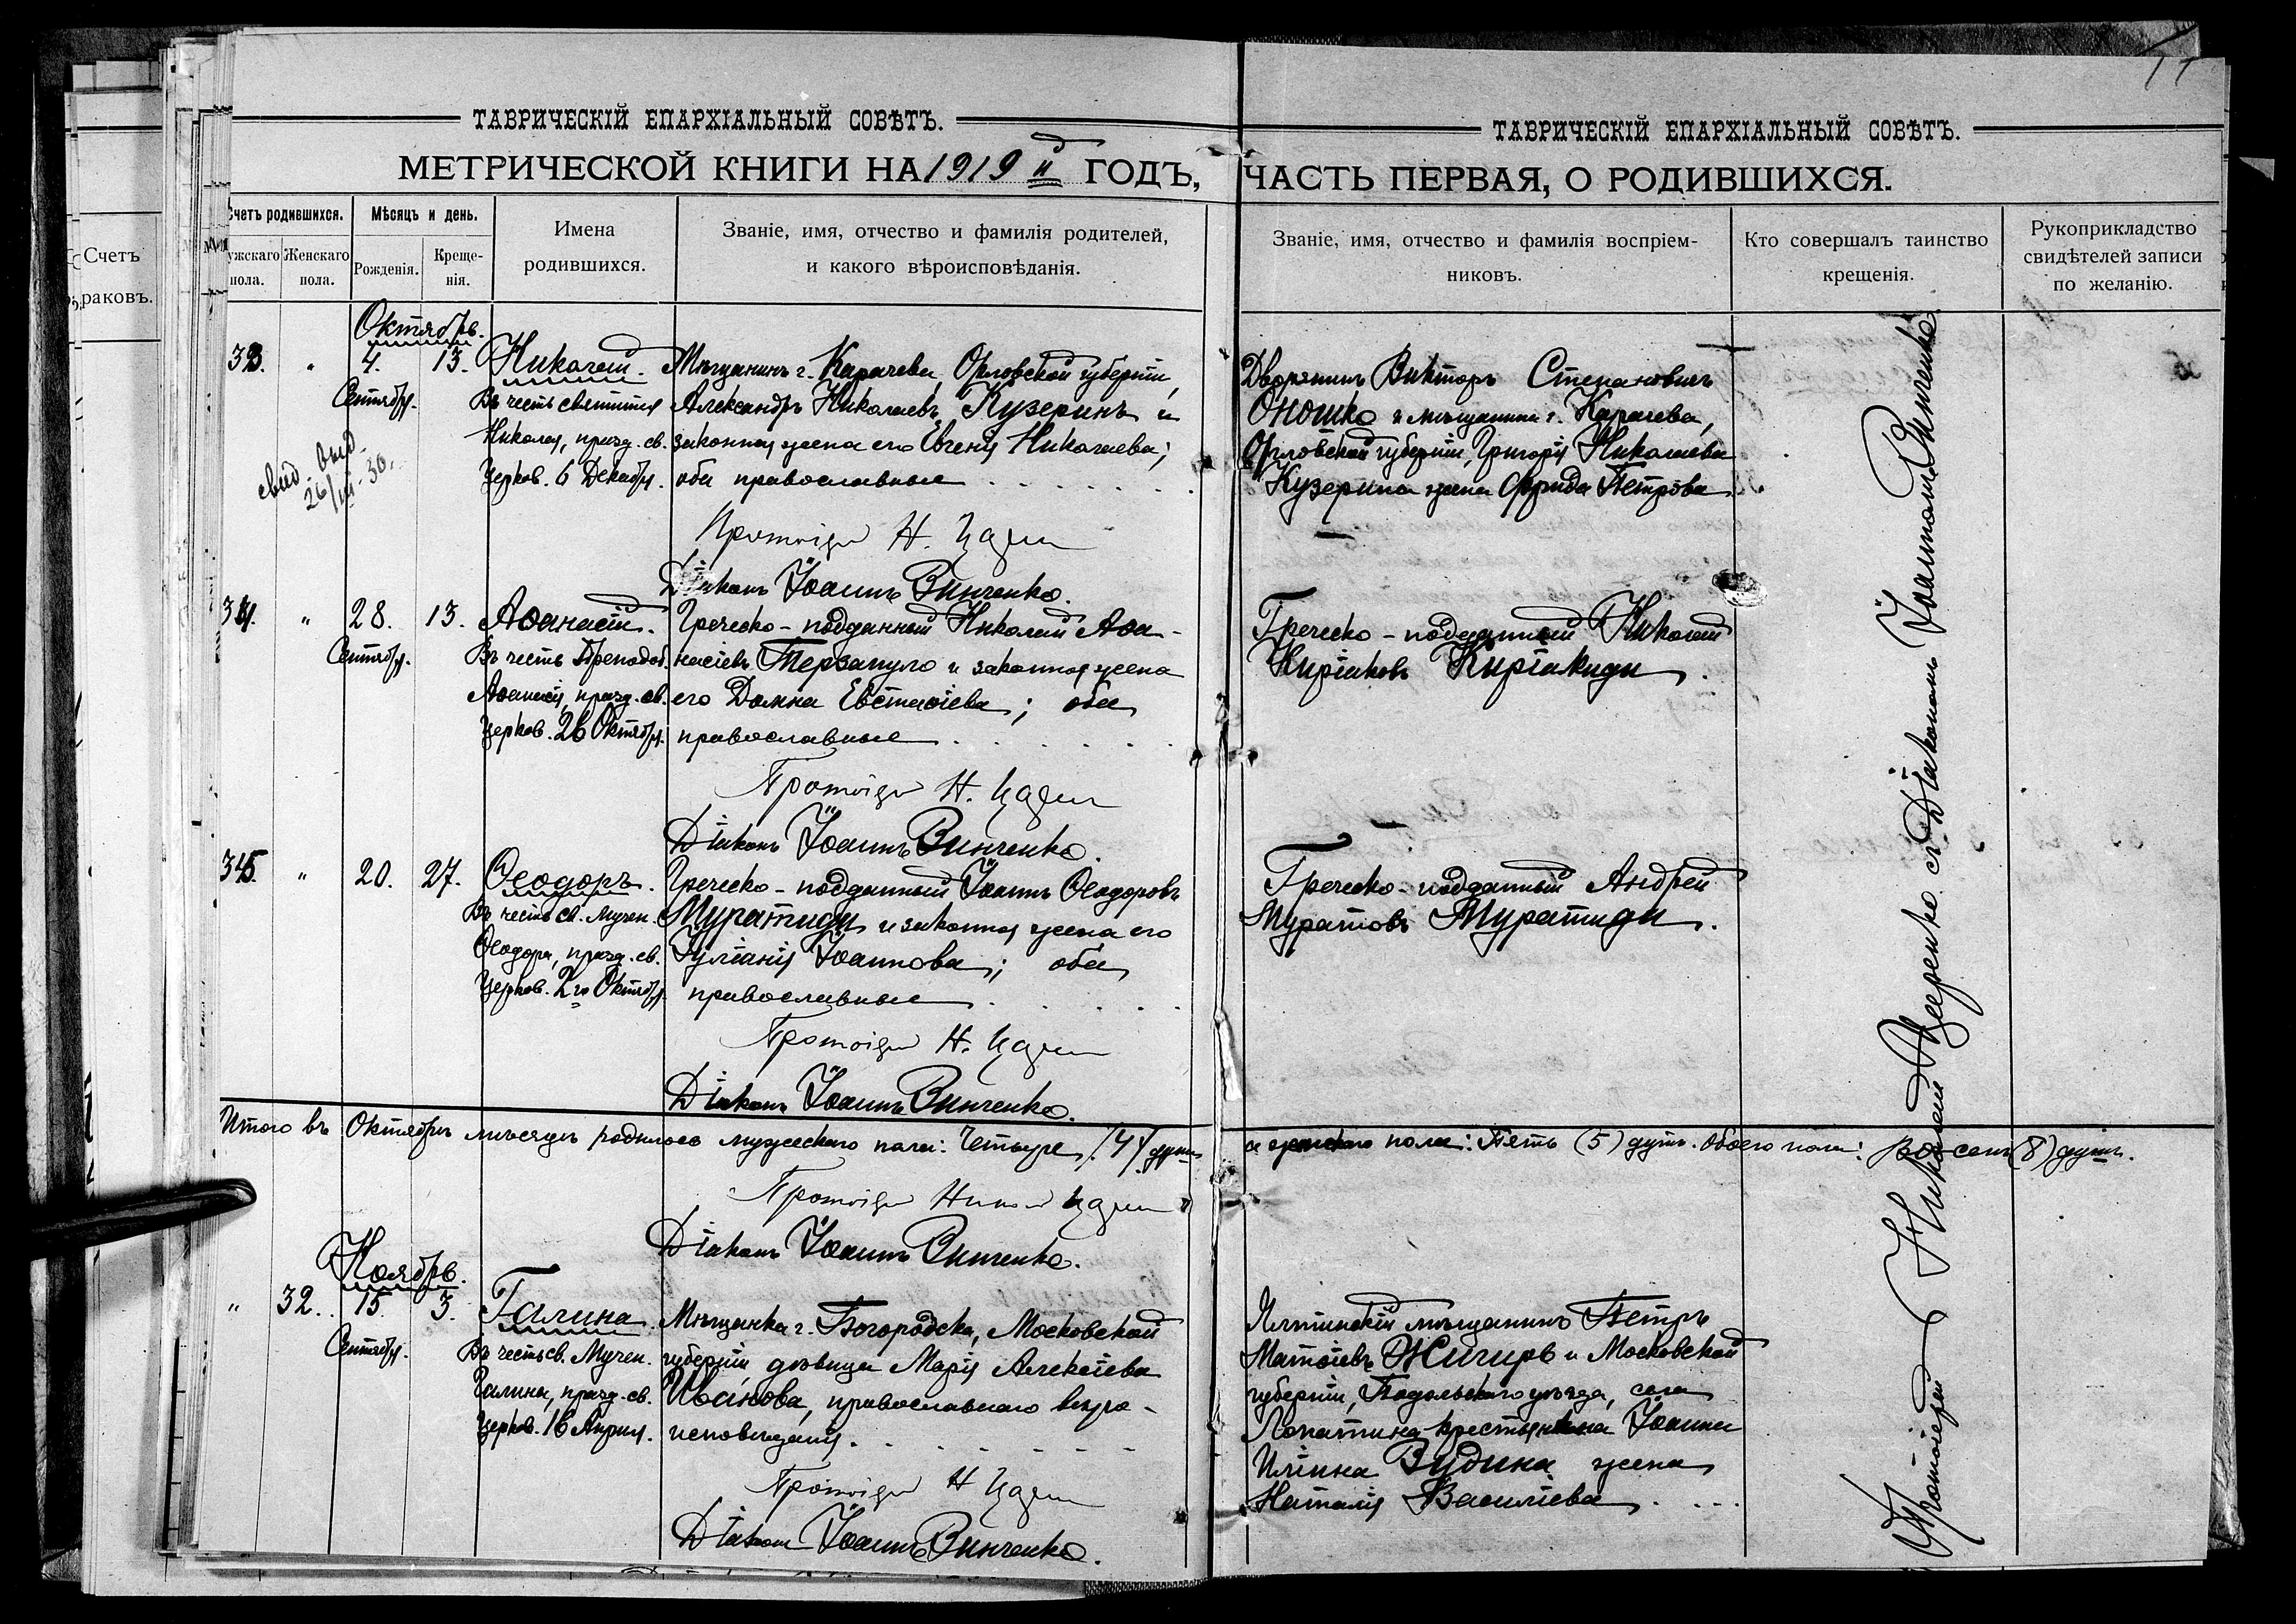 ТАВРИЧЕСКІЙ ЕПАРХІАЛЬНЫЙ СОВѢТЪ.
МЕТРИЧЕСКОЙ КНИГИ НА 1919 й ГОДЪ,
Счетъ
раковъ.
Счетъ родившихся.
Мужскаго пола.
Женскаго пола.
Мѣсяцъ и день.
Рожденія.
Крещенія.
Имена
родившихся.
Званіе, имя, отчество и фамилія родителей,
и какого вѣроисповѣданія.
Октябрь.
33. " 4. 13. Николай. Мѣщанинъ г. Карачева, Орловской губерніи,
Сентября. Въ честь святителя Александръ Николаевъ Кузеринъ и
Николая, празд. св. законная жена его Евгенія Николаева;
Церков. 6 Декабря. оба православные
свид. выд.
26/III-30.
Протоіерей Н.
Діаконъ Іоаннъ Винченко.
34. " 28. 13. Аѳанасій. Греческо-подданный Николай Аѳа-
Сентября. Въ честь Преподоб. насіевъ Терзапуло и законная жена
Аѳанасія, празд. св. его Домна Евстаѳіева; оба
Церков. 26 Октября. православные
Протоіерей Н.
Діаконъ Іоаннъ Винченко.
35. " 20. 27. Ѳеодоръ. Греческо-подданный Іоаннъ Ѳеодоровъ
Въ честь св. Мучен. Муратиди и законная жена его
Ѳеодора, празд. св. Іуліанія Іоаннова; оба
Церков. 2го Октября. православные
Протоіерей Н.
Діаконъ Іоаннъ Винченко.
Итого въ Октябрѣ мѣсяцѣ родилось мужескаго пола: Четыре (4) души
Протоіерей
Діаконъ Іоаннъ Винченко.
Ноябрь.
" 32. 15. 3. Галина. Мѣщанка г. Богородска, Московской
Сентября. Въ честь св. Мучен. губерніи дѣвица Марія Алексіева
Галины, празд. св. Иванова, православнаго вѣро-
Церков. 16 Апрѣля. исповѣданія.
Протоіерей Н
Діаконъ Іоаннъ Винченко.
ТАВРИЧЕСКІЙ ЕПАРХІАЛЬНЫЙ СОВѢТЪ.
ЧАСТЬ ПЕРВАЯ, О РОДИВШИХСЯ.
Званіе, имя, отчество и фамилія воспріем-
никовъ.
Кто совершалъ таинство
крещенія.
Рукоприкладство
свидѣтелей записи
по желанію.
Дворянинъ Викторъ Степановичъ
Оношко и мѣщанина г. Карачева,
Орловской губерніи, Григорія Николаева
Кузерина жена Фрида Петрова
Греческо-подданный Николай
Киріаковъ Киріакиди.
Греческо-подданный Андрей
Муратовъ Муратиди.
и женскаго пола: Пять (5) душъ. Обоего пола: восемь (8) душъ.
Ялтинскій мѣщанинъ Петръ
Матѳіевъ Жигирь и Московской
губерніи, Подольскаго уѣзда, села
Лопатина крестьянина Іоанна
Иліина Зудина жена
Наталія Василіева
Протоіерей Николай съ Діакономъ Іоанномъ Винченко.